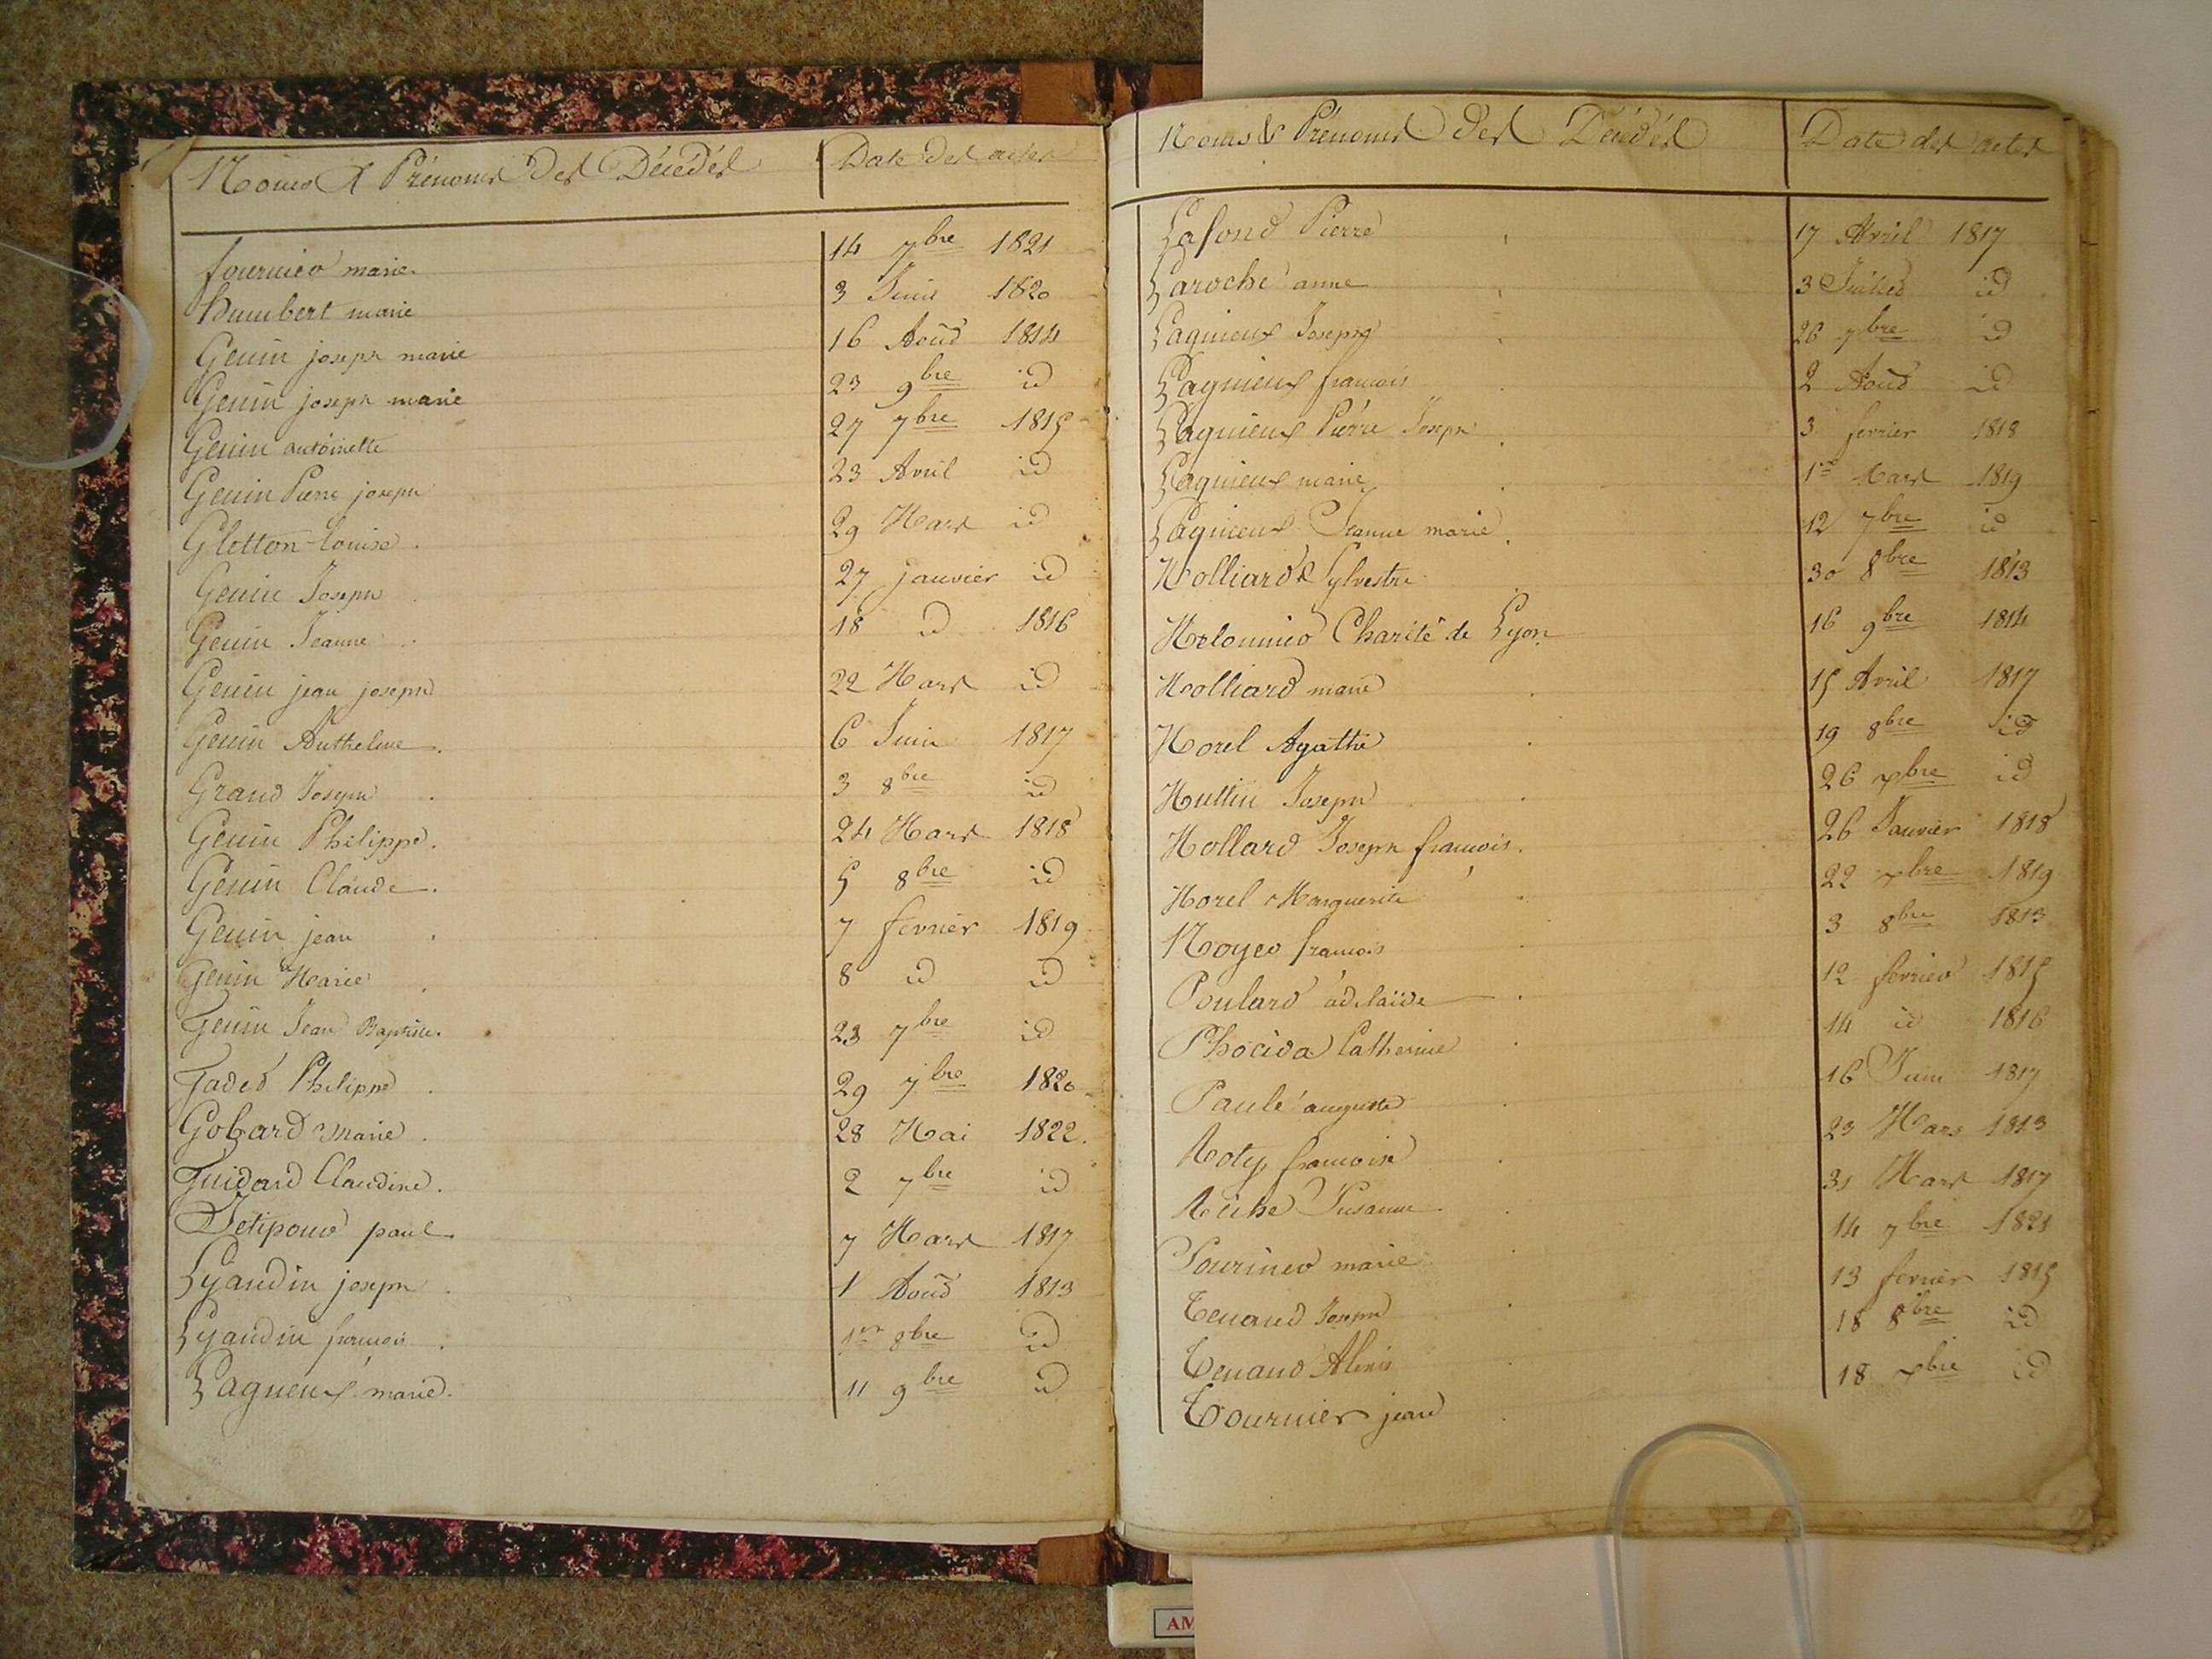 Noms & Prénoms des Décédés Date des actes
fournier marie 14 7bre 1821
humbert marie 3 Juin 1820
Genin joseph marie 16 Août 1814
Genin joseph marie 23 9bre id
Genin antoinette 27 7bre 1815
Genin Pierre joseph 23 Avril id
Glotton louise 29 Mars id
Genin Joseph 27 janvier id
Genin Jeanne 18 id 1816
Genin jean joseph 22 Mars id
Genin Anthelme 6 Juin 1817
Grand Joseph 3 8bre id
Genin Philippe 24 Mars 1818
Genin Claude 5 8bre id
Genin jean 7 fevrier 1819
Genin Marie 8 id id
Genin Jean Baptiste 23 7bre id
Gadet Philippe 29 7bre 1820
Gobard Marie 28 Mai 1822
Guidard Claudine 2 7bre id
paul 7 Mars 1817
Lyaudin joseph 1 Août 1813
Lyaudin francois 1er 8bre id
Lagneux marie 11 9bre id
Noms & Prénoms des Décédés Date des actes
Lafond Pierre 17 Avril 1817
Laroche anne 3 Juillet id
Lagnieux Joseph 26 7bre id
Lagnieux francois 2 Août id
Lagnieux Pierre Joseph 3 fevrier 1818
Lagnieux marie 1er Mars 1819
Lagnieux Jeanne marie 12 7bre id
Molliard Sylvestre 30 8bre 1813
Charité de Lyon 16 9bre 1814
Molliard marie 15 Avril 1817
Morel Agathe 19 8bre id
Joseph 26 xbre id
Mollard Joseph francois 26 Janvier 1818
Morel Marguerite 22 xbre 1819
Noyer francois 3 8bre 1813
Poulard adelaïde 12 fevrier 1815
Catherine 14 id 1816
Paule auguste 16 Juin 1817
Roty francoise 23 Mars 1813
Susanne 31 Mars 1817
marie 14 7bre 1821
Tenand Joseph 13 fevrier 1815
Tenand Alexis 18 8bre id
Tournier jean 18 xbre id
AM